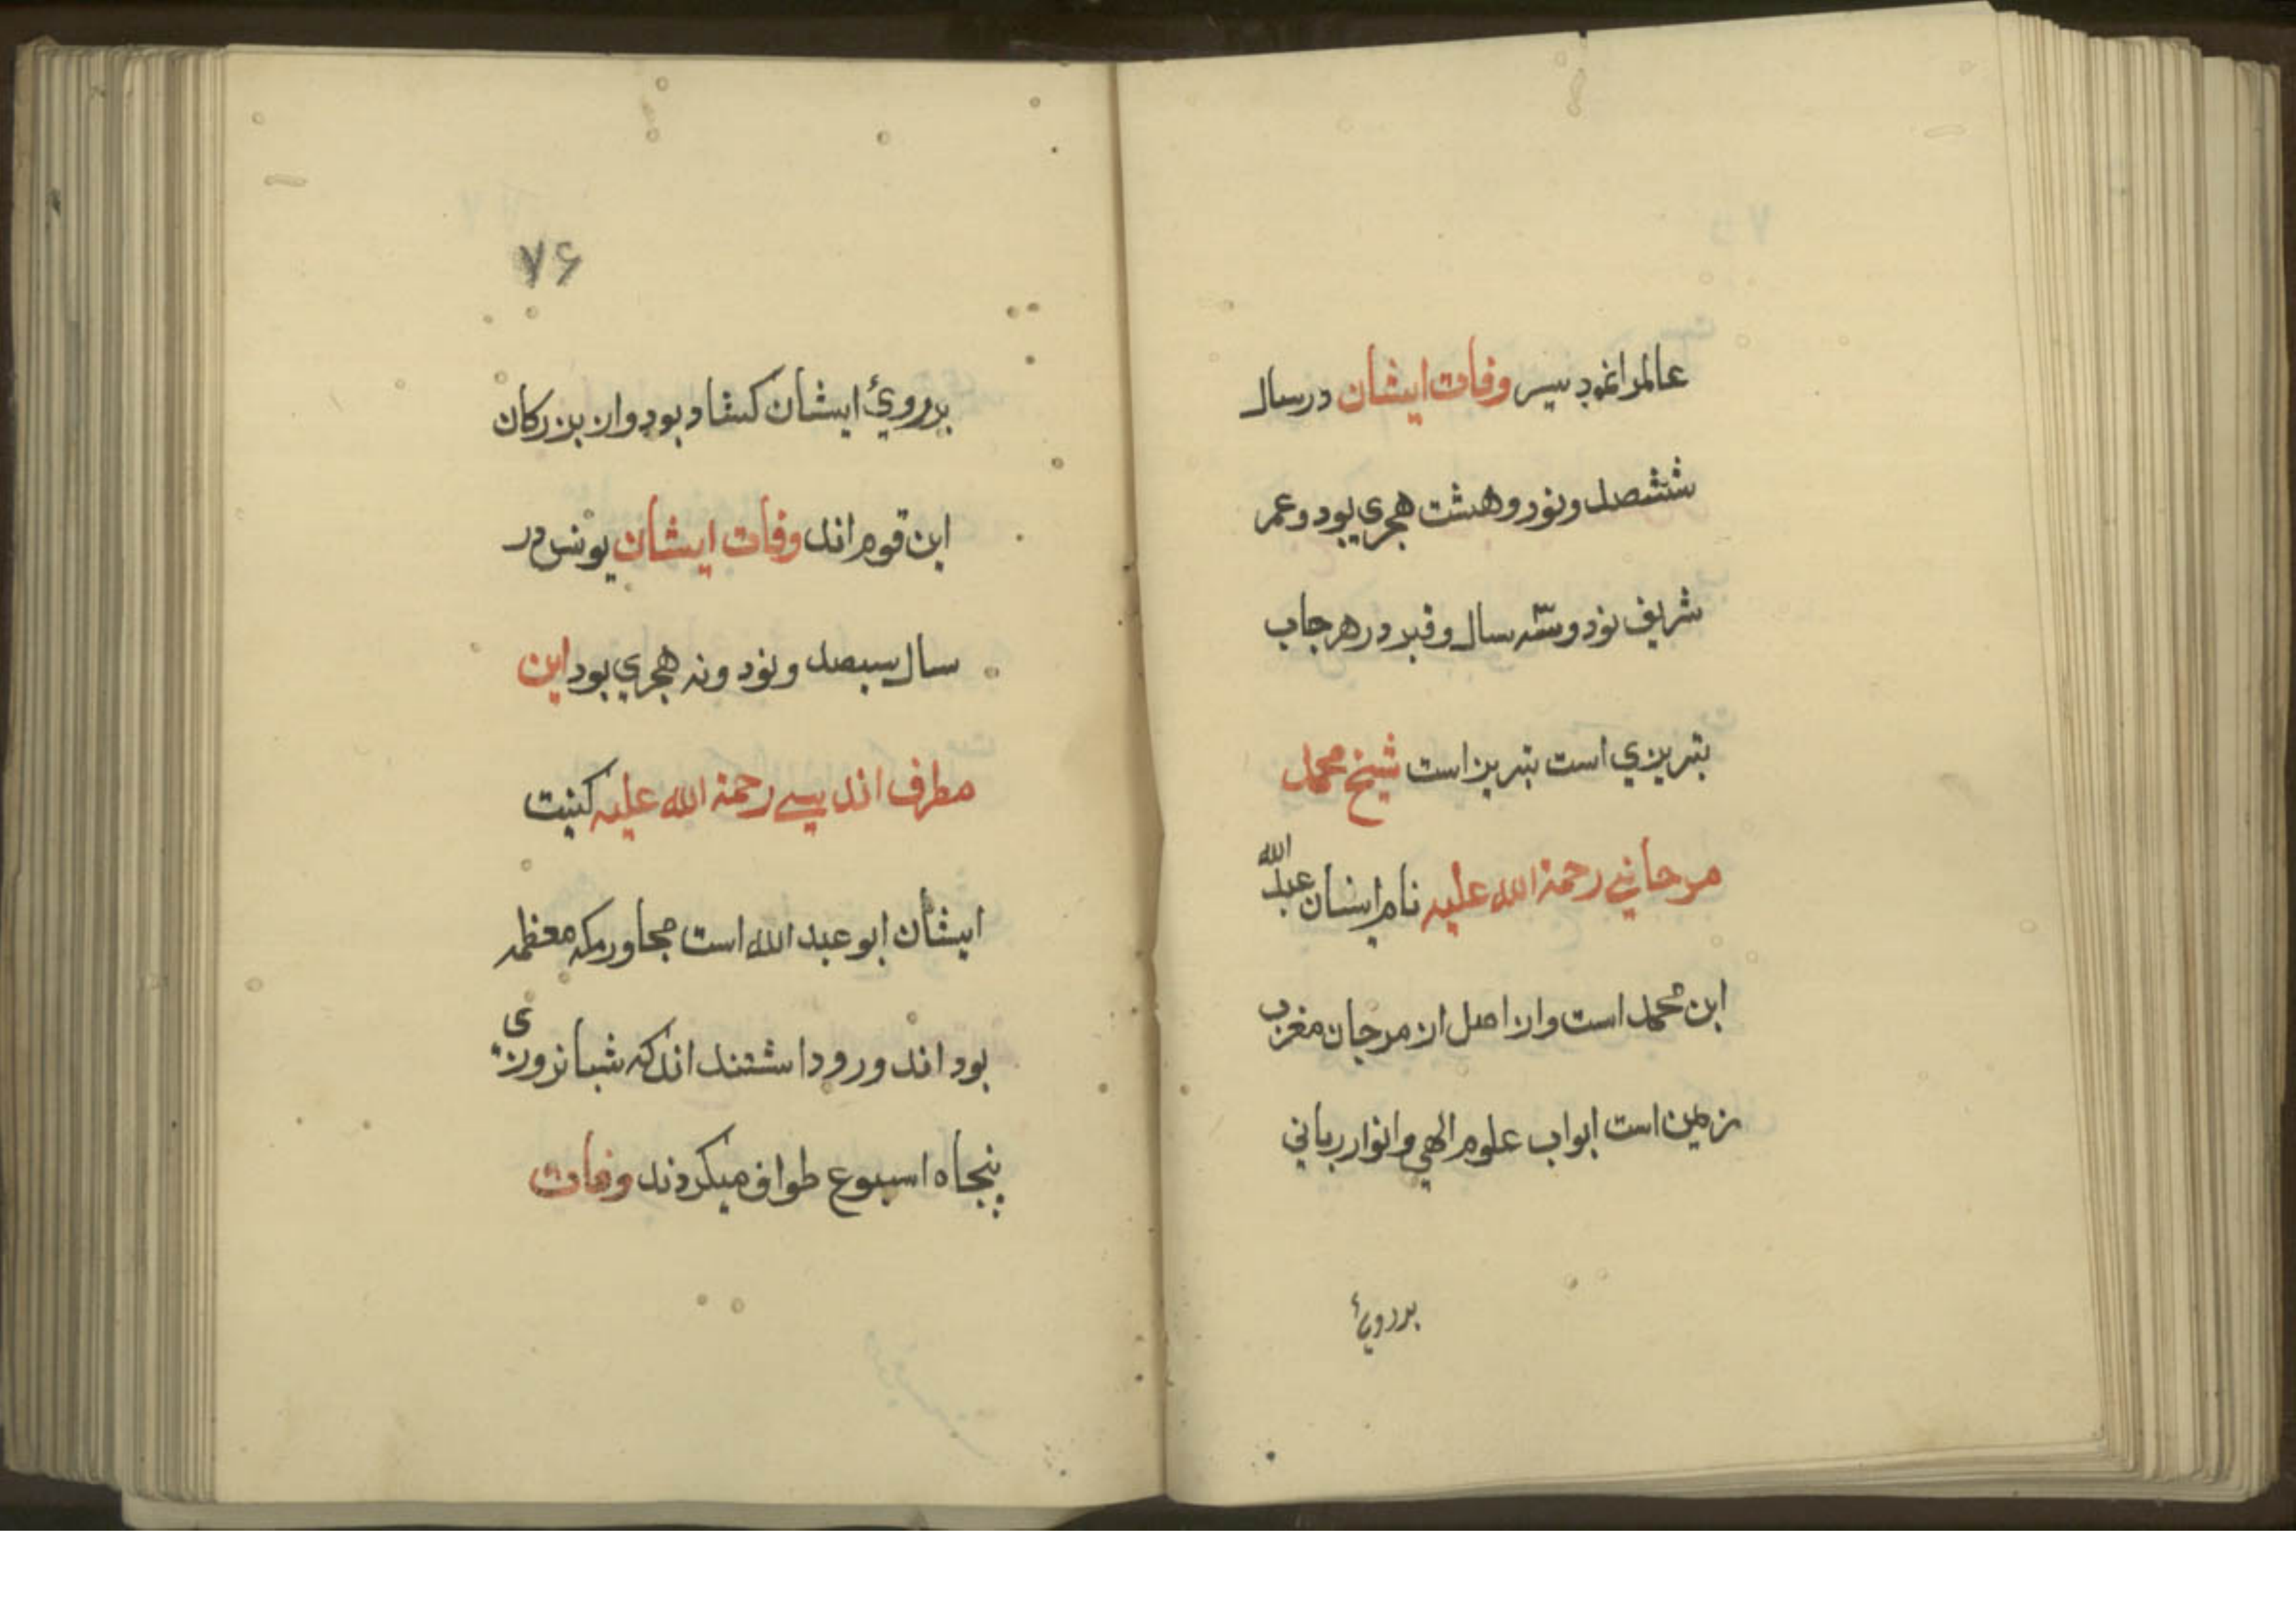 عالم را نمودیس وفات ایشان در سال
ششصد و نود و هشت هجری بود و عمر
شریف نود و سه سال و قبر در هر جاب
تبریزی است تبریز است شیخ محمد
مرجانی رحمة الله علیه نام ایشان عبد الله
ابن محمد است و از اصل از مرجان مغرب
زمین است ابواب علوم الهی و انوار ربانی
بر روئ
۷۶
بر رویٔ ایشان کشاد بود و از بزرکان
این قوم اند وفات ایشان بونس در
سال سیصد و نود و نه هجری بود این
مطرف اندیسے رحمة الله علیه کنیت
ایشان ابو عبد الله است مجاور مکه معظمه
بود اند و رود اشتند اند که شبانروزی
پنجاه اسبوع طواف میکردند وفات